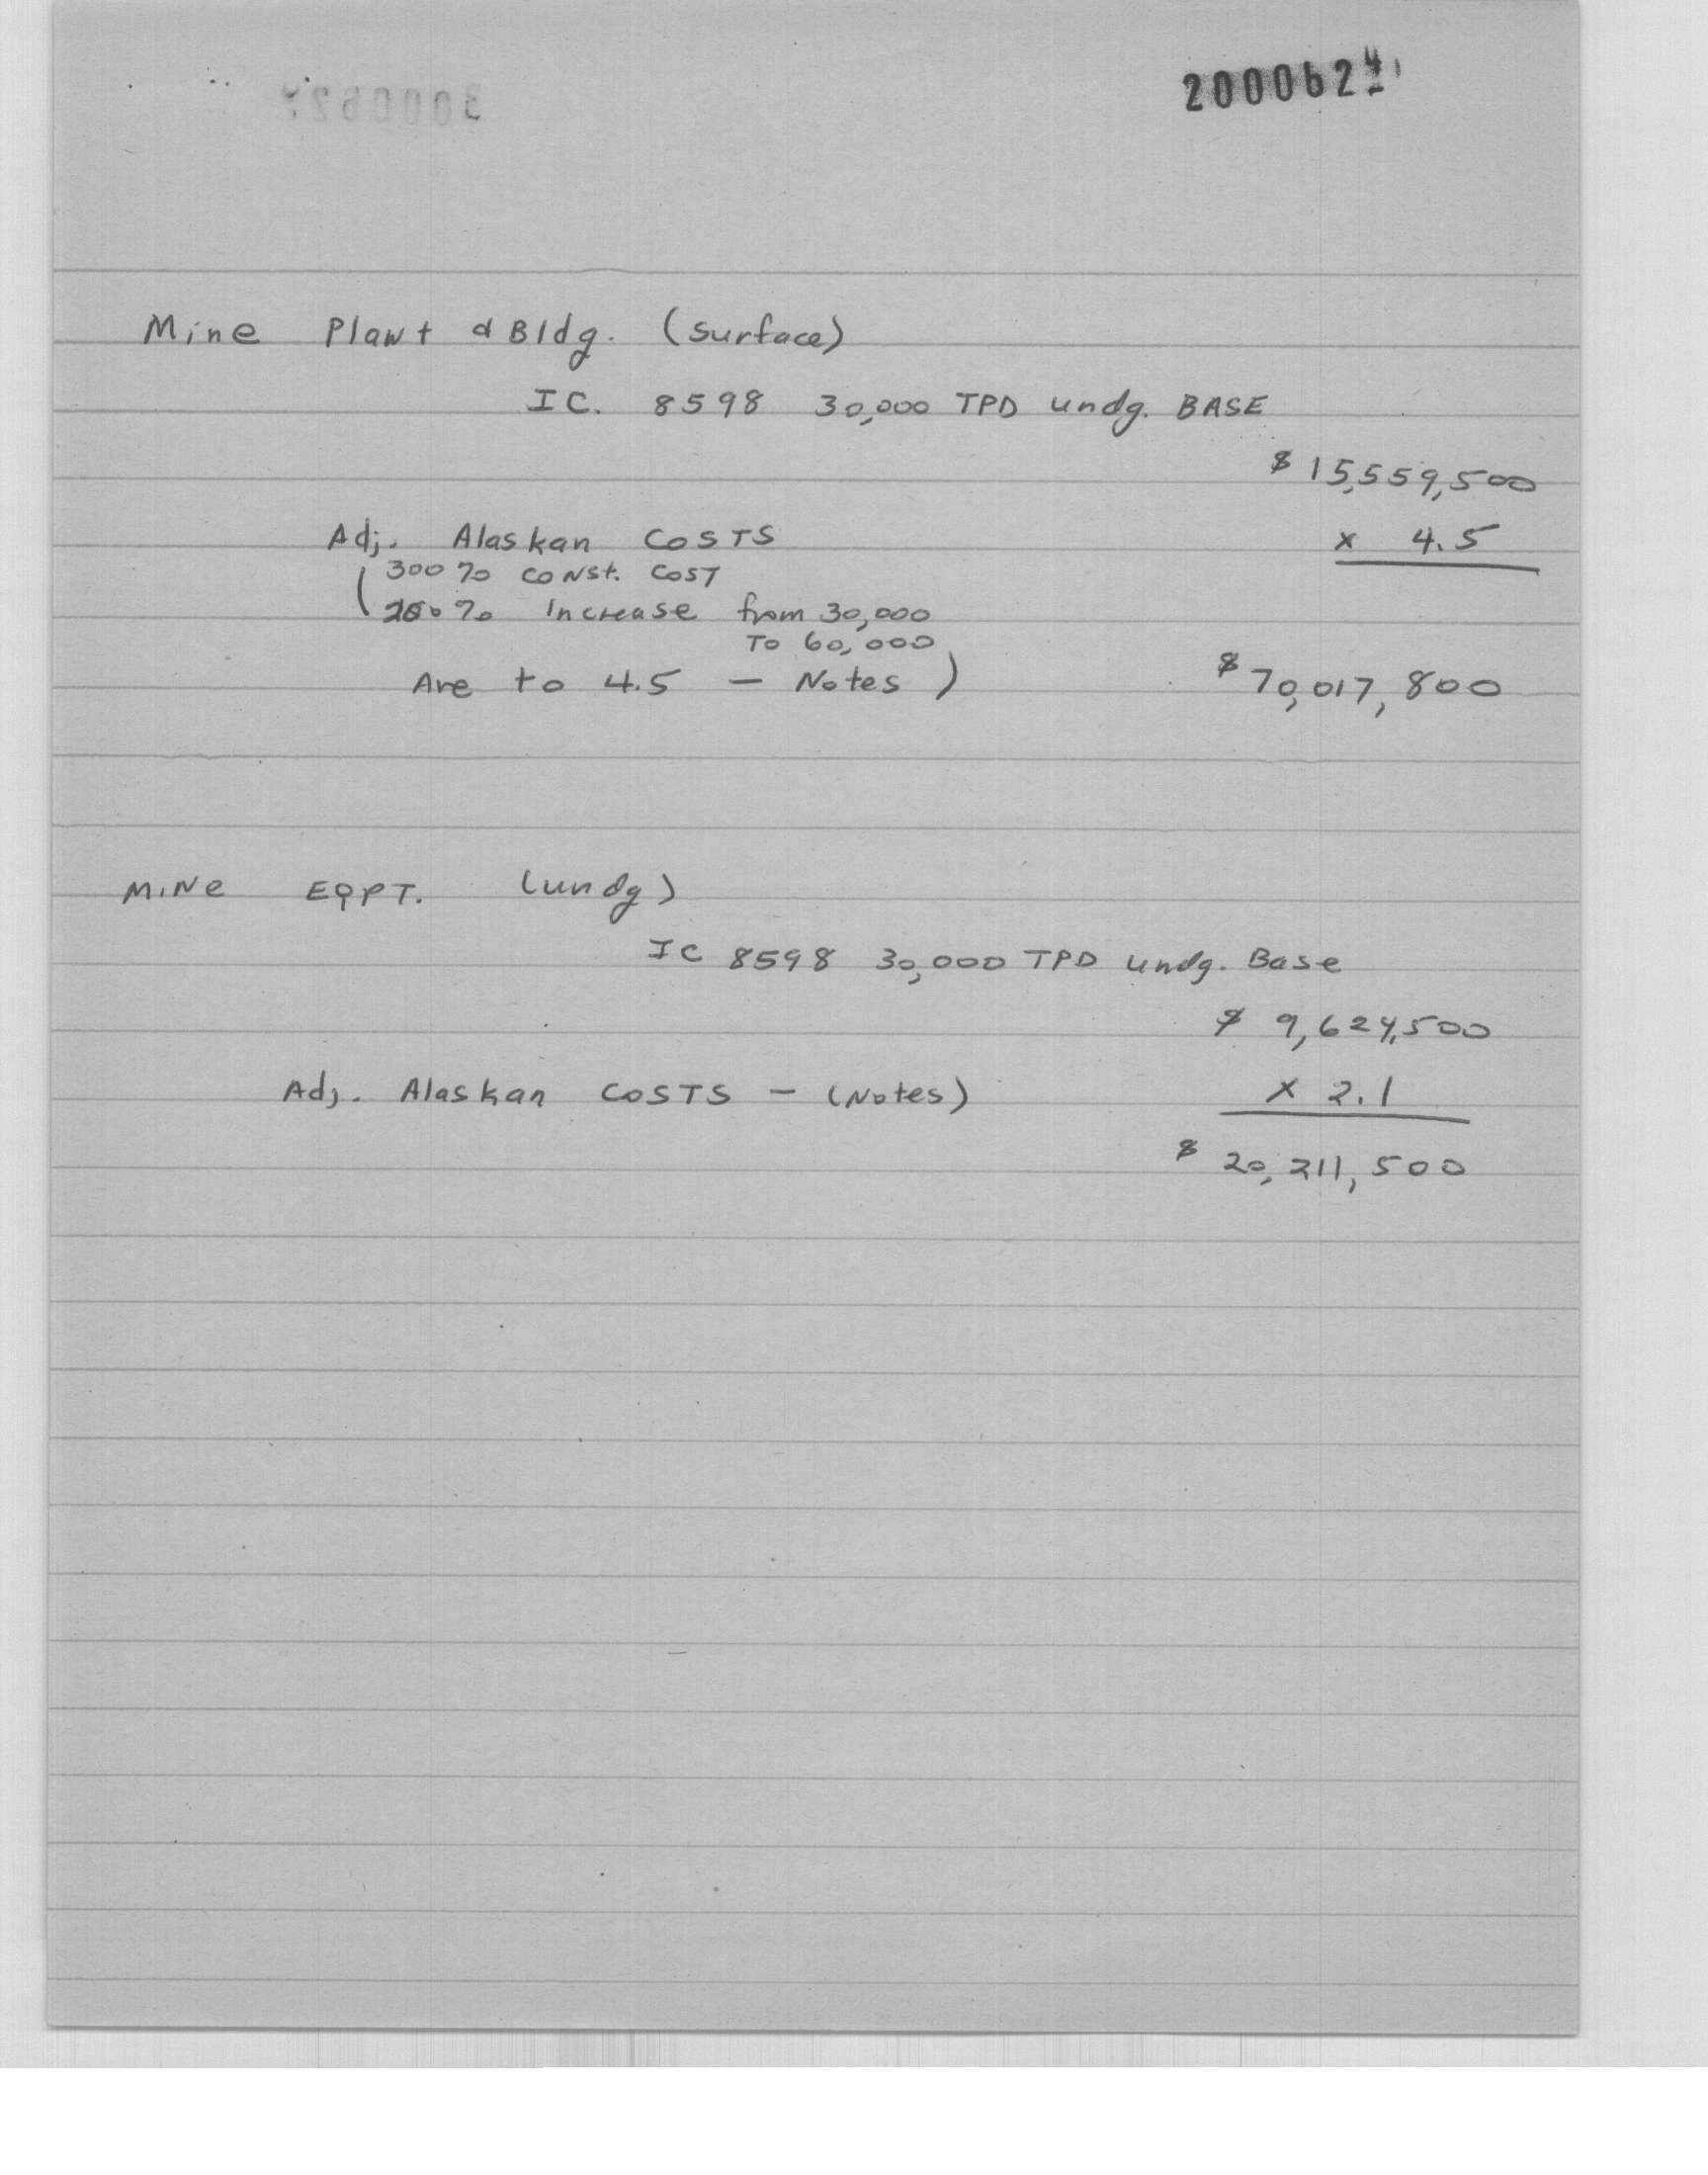 2000624
Mine Plant & Bldg. (surface)
IC. 8598 30,000 TPD undg. BASE
$ 15,559,500
Adj. Alaskan COSTS x 4.5
(300% const. COST
% Increase from 30,000
To 60,000
Ave to 4.5 — Notes) $70,017,800
MiNe EQPT. (undg)
IC 8598 30,000 TPD undg. Base
$ 9,624,500
Adj. Alaskan COSTS — (Notes) x 2.1
$ 20,211,500